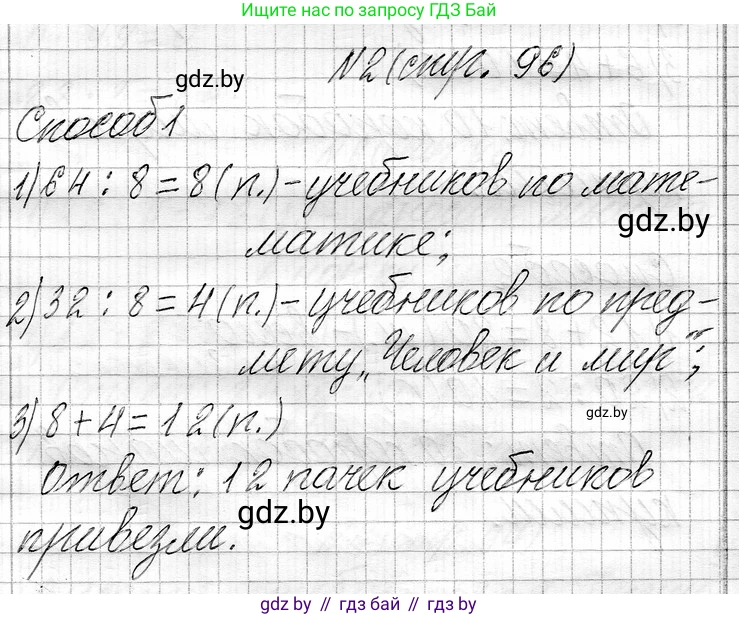 Ищите нас по запросу ГДЗ Бай
№2 (стр. 96)
gdz.by
Способ 1
1) 64 : 8 = 8 (п.) - учебников по мате-
gdz.by
матике;
2) 32 : 8 = 4 (п.) - учебников по пред-
мету „Человек и мир“;
3) 8 + 4 = 12 (п.)
gdz.by
Ответ: 12 пачек учебников
gdz.by
привезли.
gdz.by // гдз бай // gdz.by